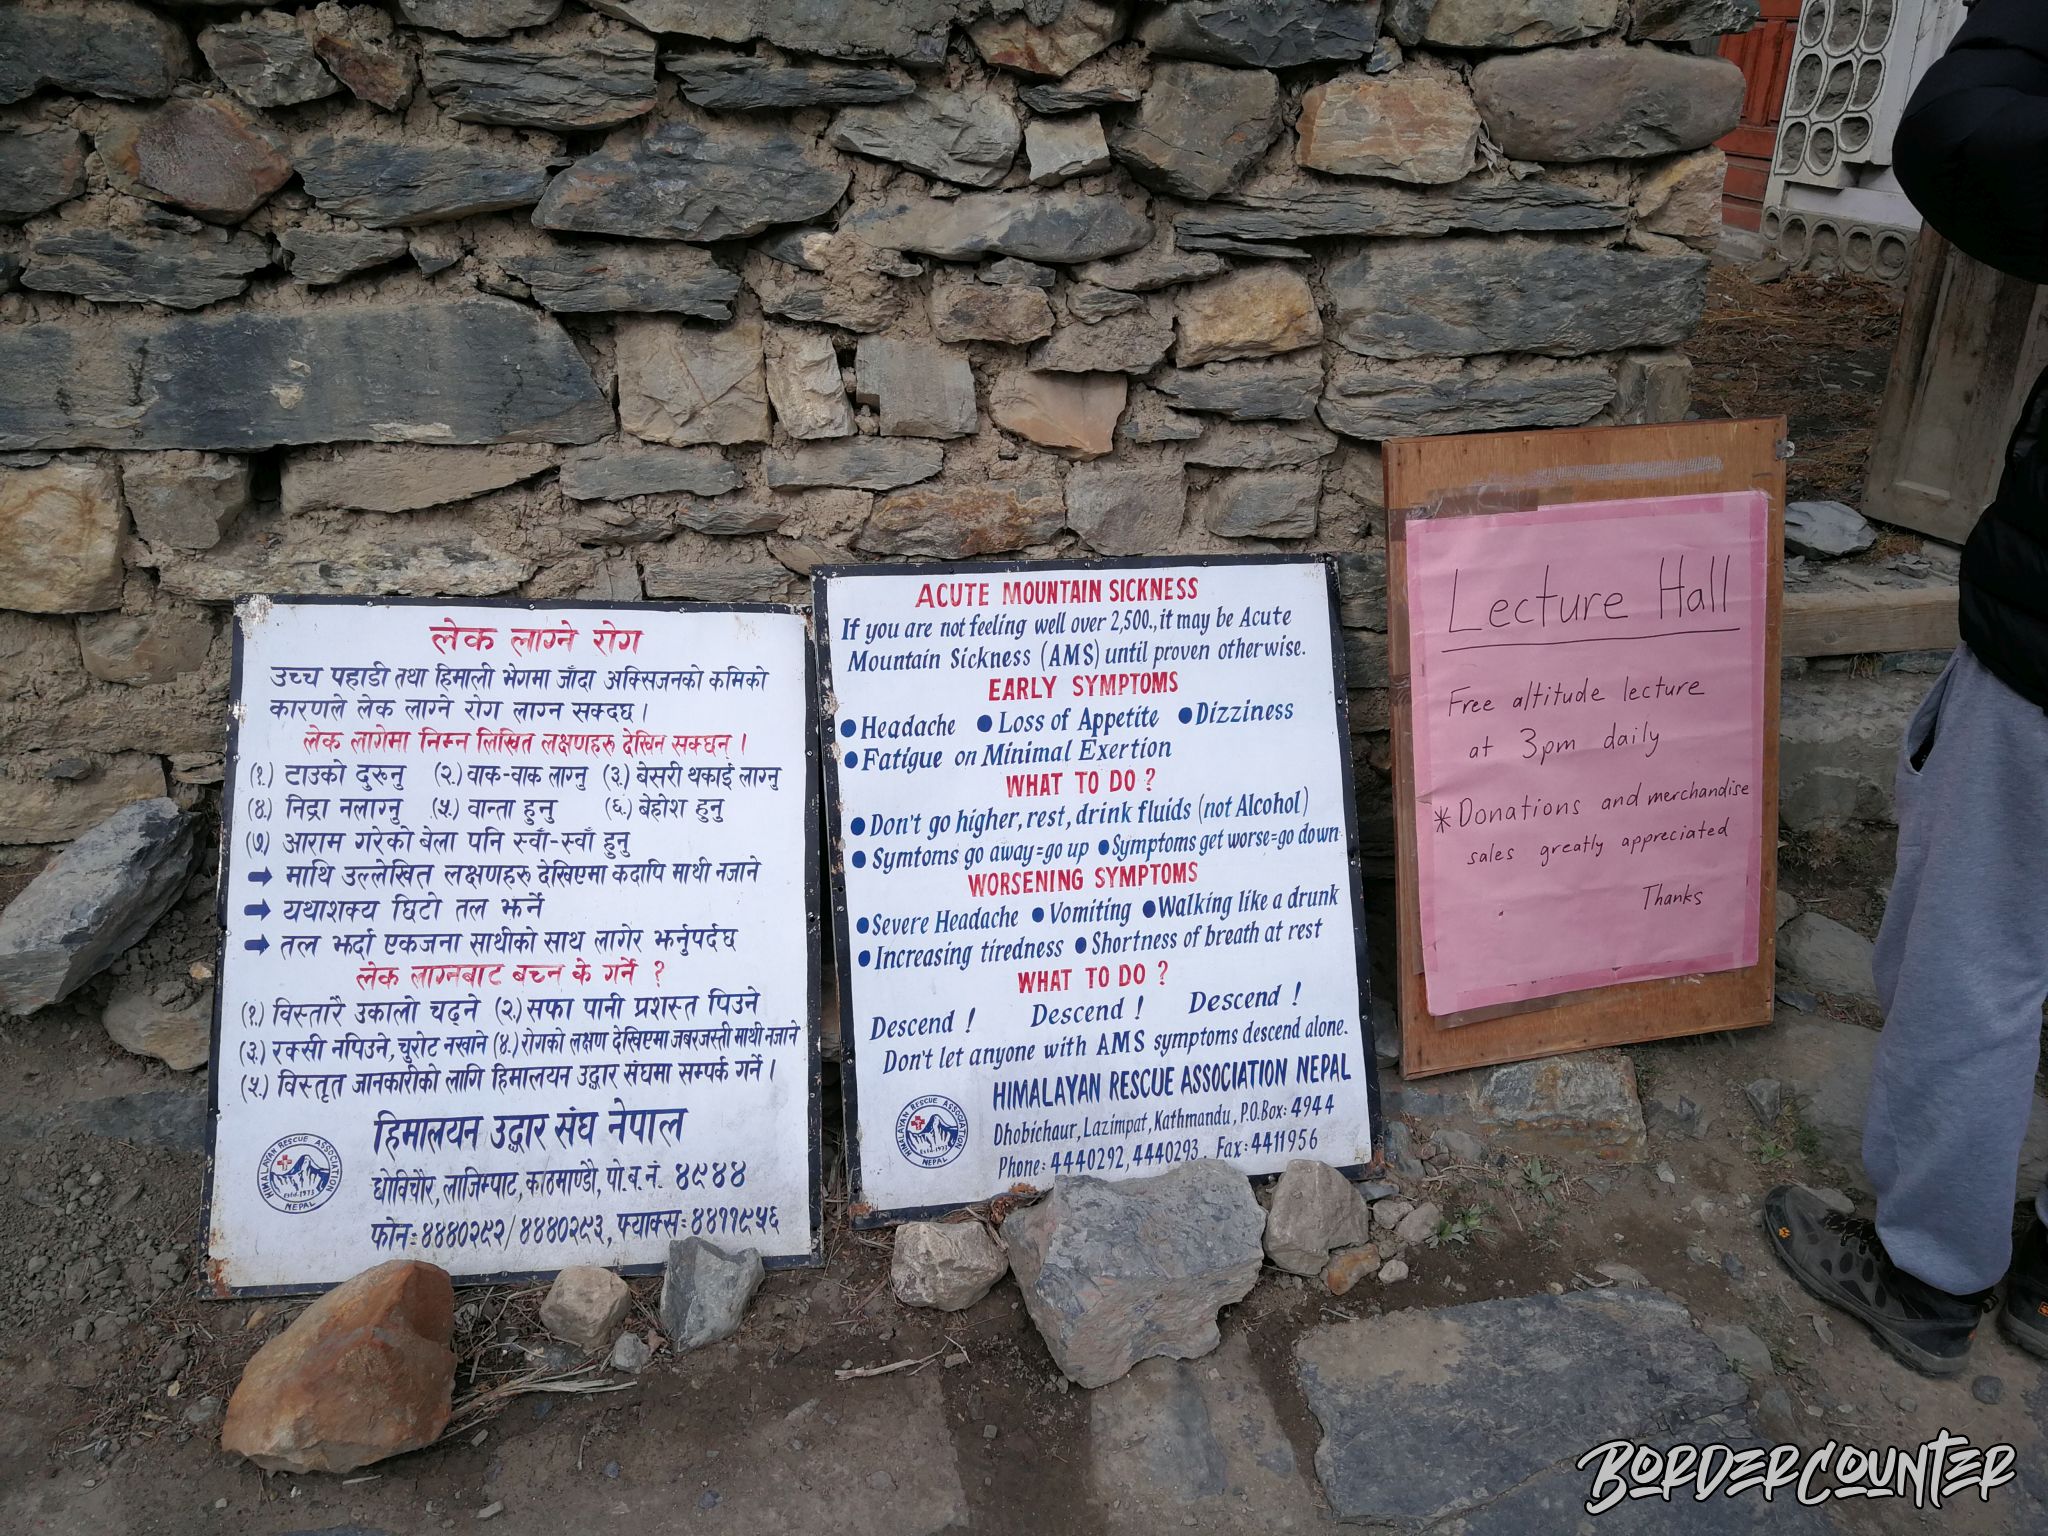 लेक लाग्ने रोग
उच्च पहाडी तथा हिमाली भेगमा जाँदा अक्सिजनको कमिको
कारणले लेक लाग्ने रोग लाग्न सक्दछ ।
लेक लागेमा निम्न लिखित लक्षणहरु देखिन सक्छन् ।
(१.) टाउको दुख्नु (२.) वाक-वाक लाग्नु (३.) बेसरी थकाई लाग्नु
(४.) निद्रा नलाग्नु (५.) वान्ता हुनु (६.) बेहोश हुनु
(७) आराम गरेको बेला पनि स्वाँ-स्वाँ हुनु
➡ माथि उल्लेखित लक्षणहरु देखिएमा कदापि माथी नजाने
➡ यथाशक्य छिटो तल झर्ने
➡ तल झर्दा एकजना साथीको साथ लागेर झर्नुपर्दछ
लेक लाग्नबाट बच्न के गर्ने ?
(१.) विस्तारै उकालो चढ्ने (२.) सफा पानी प्रशस्त पिउने
(३.) रक्सी नपिउने, चुरोट नखाने (४.) रोगको लक्षण देखिएमा जबरजस्ती माथी नजाने
(५.) विस्तृत जानकारीको लागि हिमालयन उद्धार संघमा सम्पर्क गर्ने ।
हिमालयन उद्धार संघ नेपाल
धोविचौर, लाजिम्पाट, काठमाण्डौ, पो.ब.नं. ४९४४
फोन: ४४४०२९२/ ४४४०२९३, फ्याक्स: ४४११९५६
HIMALAYAN RESCUE ASSOCIATION
Estd. 1973
NEPAL
ACUTE MOUNTAIN SICKNESS
If you are not feeling well over 2,500., it may be Acute
Mountain Sickness (AMS) until proven otherwise.
EARLY SYMPTOMS
● Headache ● Loss of Appetite ● Dizziness
● Fatigue on Minimal Exertion
WHAT TO DO ?
● Don't go higher, rest, drink fluids (not Alcohol)
● Symtoms go away=go up ● Symptoms get worse=go down
WORSENING SYMPTOMS
● Severe Headache ● Vomiting ● Walking like a drunk
● Increasing tiredness ● Shortness of breath at rest
WHAT TO DO ?
Descend ! Descend ! Descend !
Don't let anyone with AMS symptoms descend alone.
HIMALAYAN RESCUE ASSOCIATION NEPAL
Dhobichaur, Lazimpat, Kathmandu, P.O.Box: 4944
Phone: 4440292, 4440293. Fax: 4411956
HIMALAYAN RESCUE ASSOCIATION
Estd. 1973
NEPAL
Lecture Hall
Free altitude lecture
at 3pm daily
* Donations and merchandise
sales greatly appreciated
Thanks
BORDERCOUNTER